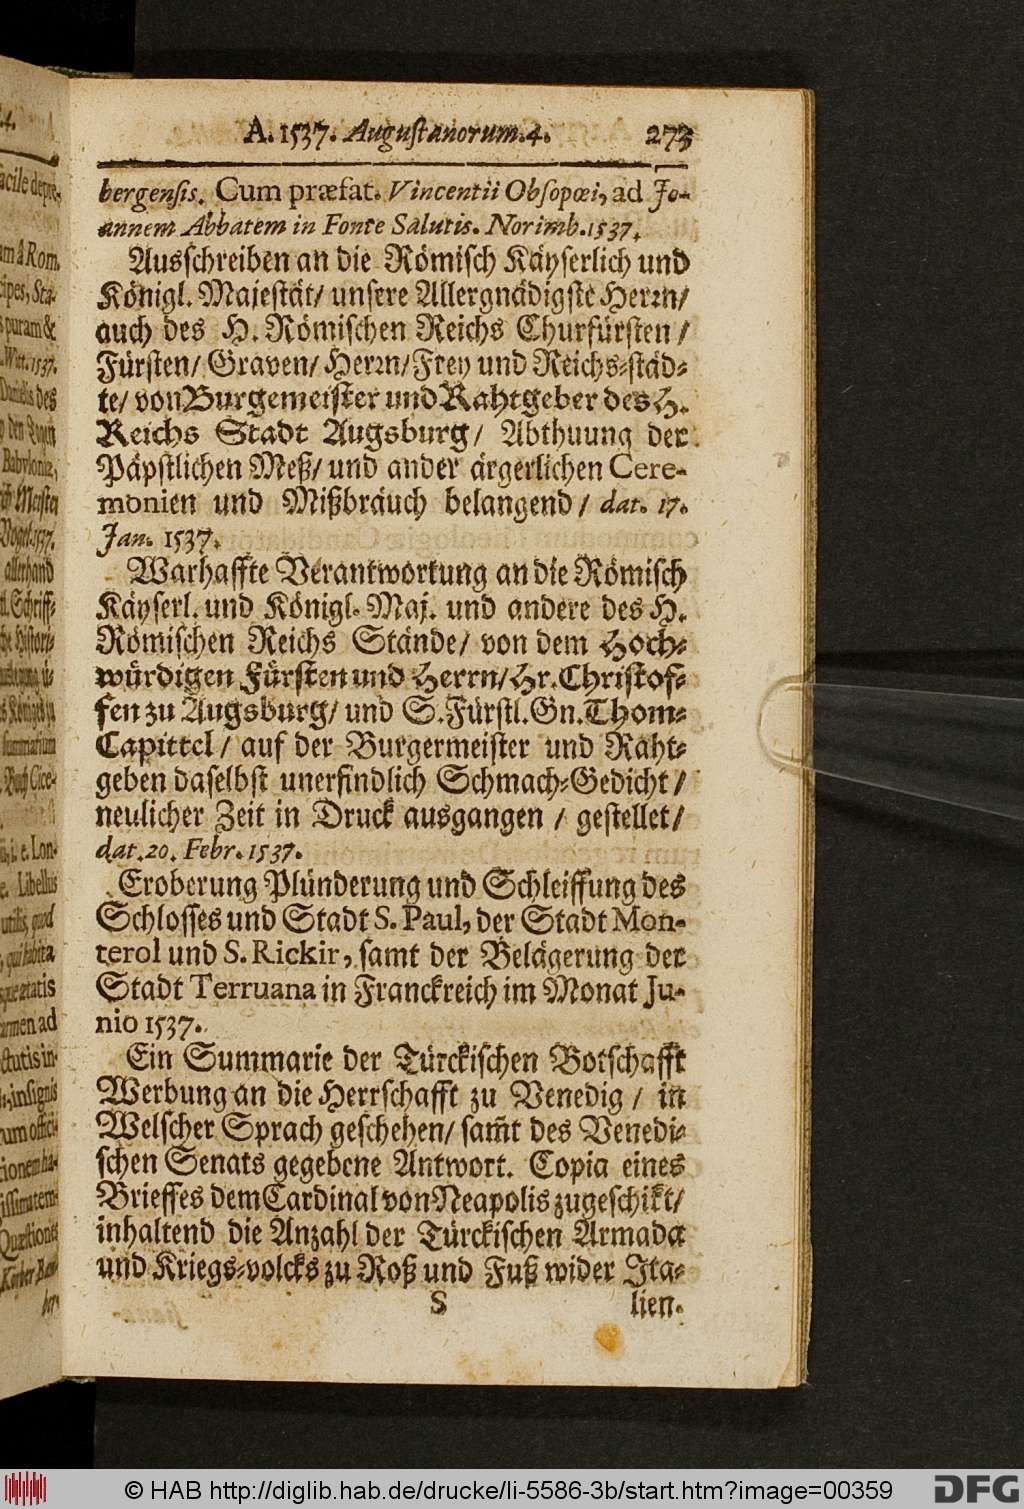 A. 1537. Augustanorum. 4. 273
bergensis. Cum præfat. Vincentii Obsopœi, ad Jo-
annem Abbatem in Fonte Salutis. Norimb. 1537.
Ausschreiben an die Römisch Käyserlich und
Königl. Majestät/ unsere Allergnädigste Herrn/
auch des H. Römischen Reichs Churfürsten /
Fürsten/ Graven/ Herrn/ Frey und Reichs-städ-
te/ von Burgemeister und Rahtgeber des H.
Reichs Stadt Augsburg/ Abthuung der
Päpstlichen Meß/ und ander ärgerlichen Cere-
monien und Mißbräuch belangend / dat. 17.
Jan. 1537.
Warhaffte Verantwortung an die Römisch
Käyserl. und Königl. Maj. und andere des H.
Römischen Reichs Stände/ von dem Hoch-
würdigen Fürsten und Herrn/ Hr. Christof-
fen zu Augsburg/ und S. Fürstl. Gn. Thom-
Capittel / auf der Burgermeister und Raht-
geben daselbst unerfindlich Schmach-Gedicht /
neulicher Zeit in Druck ausgangen / gestellet/
dat. 20. Febr. 1537.
Eroberung Plünderung und Schleiffung des
Schlosses und Stadt S. Paul, der Stadt Mon-
terol und S. Rickir, samt der Belägerung der
Stadt Terruana in Franckreich im Monat Ju-
nio 1537.
Ein Summarie der Türckischen Botschafft
Werbung an die Herrschafft zu Venedig / in
Welscher Sprach geschehen/ sam̄t des Venedi-
schen Senats gegebene Antwort. Copia eines
Brieffes dem Cardinal von Neapolis zugeschikt/
inhaltend die Anzahl der Türckischen Armada
und Kriegs-volcks zu Roß und Fuß wider Ita-
S lien.
© HAB http://diglib.hab.de/drucke/li-5586-3b/start.htm?image=00359
DFG